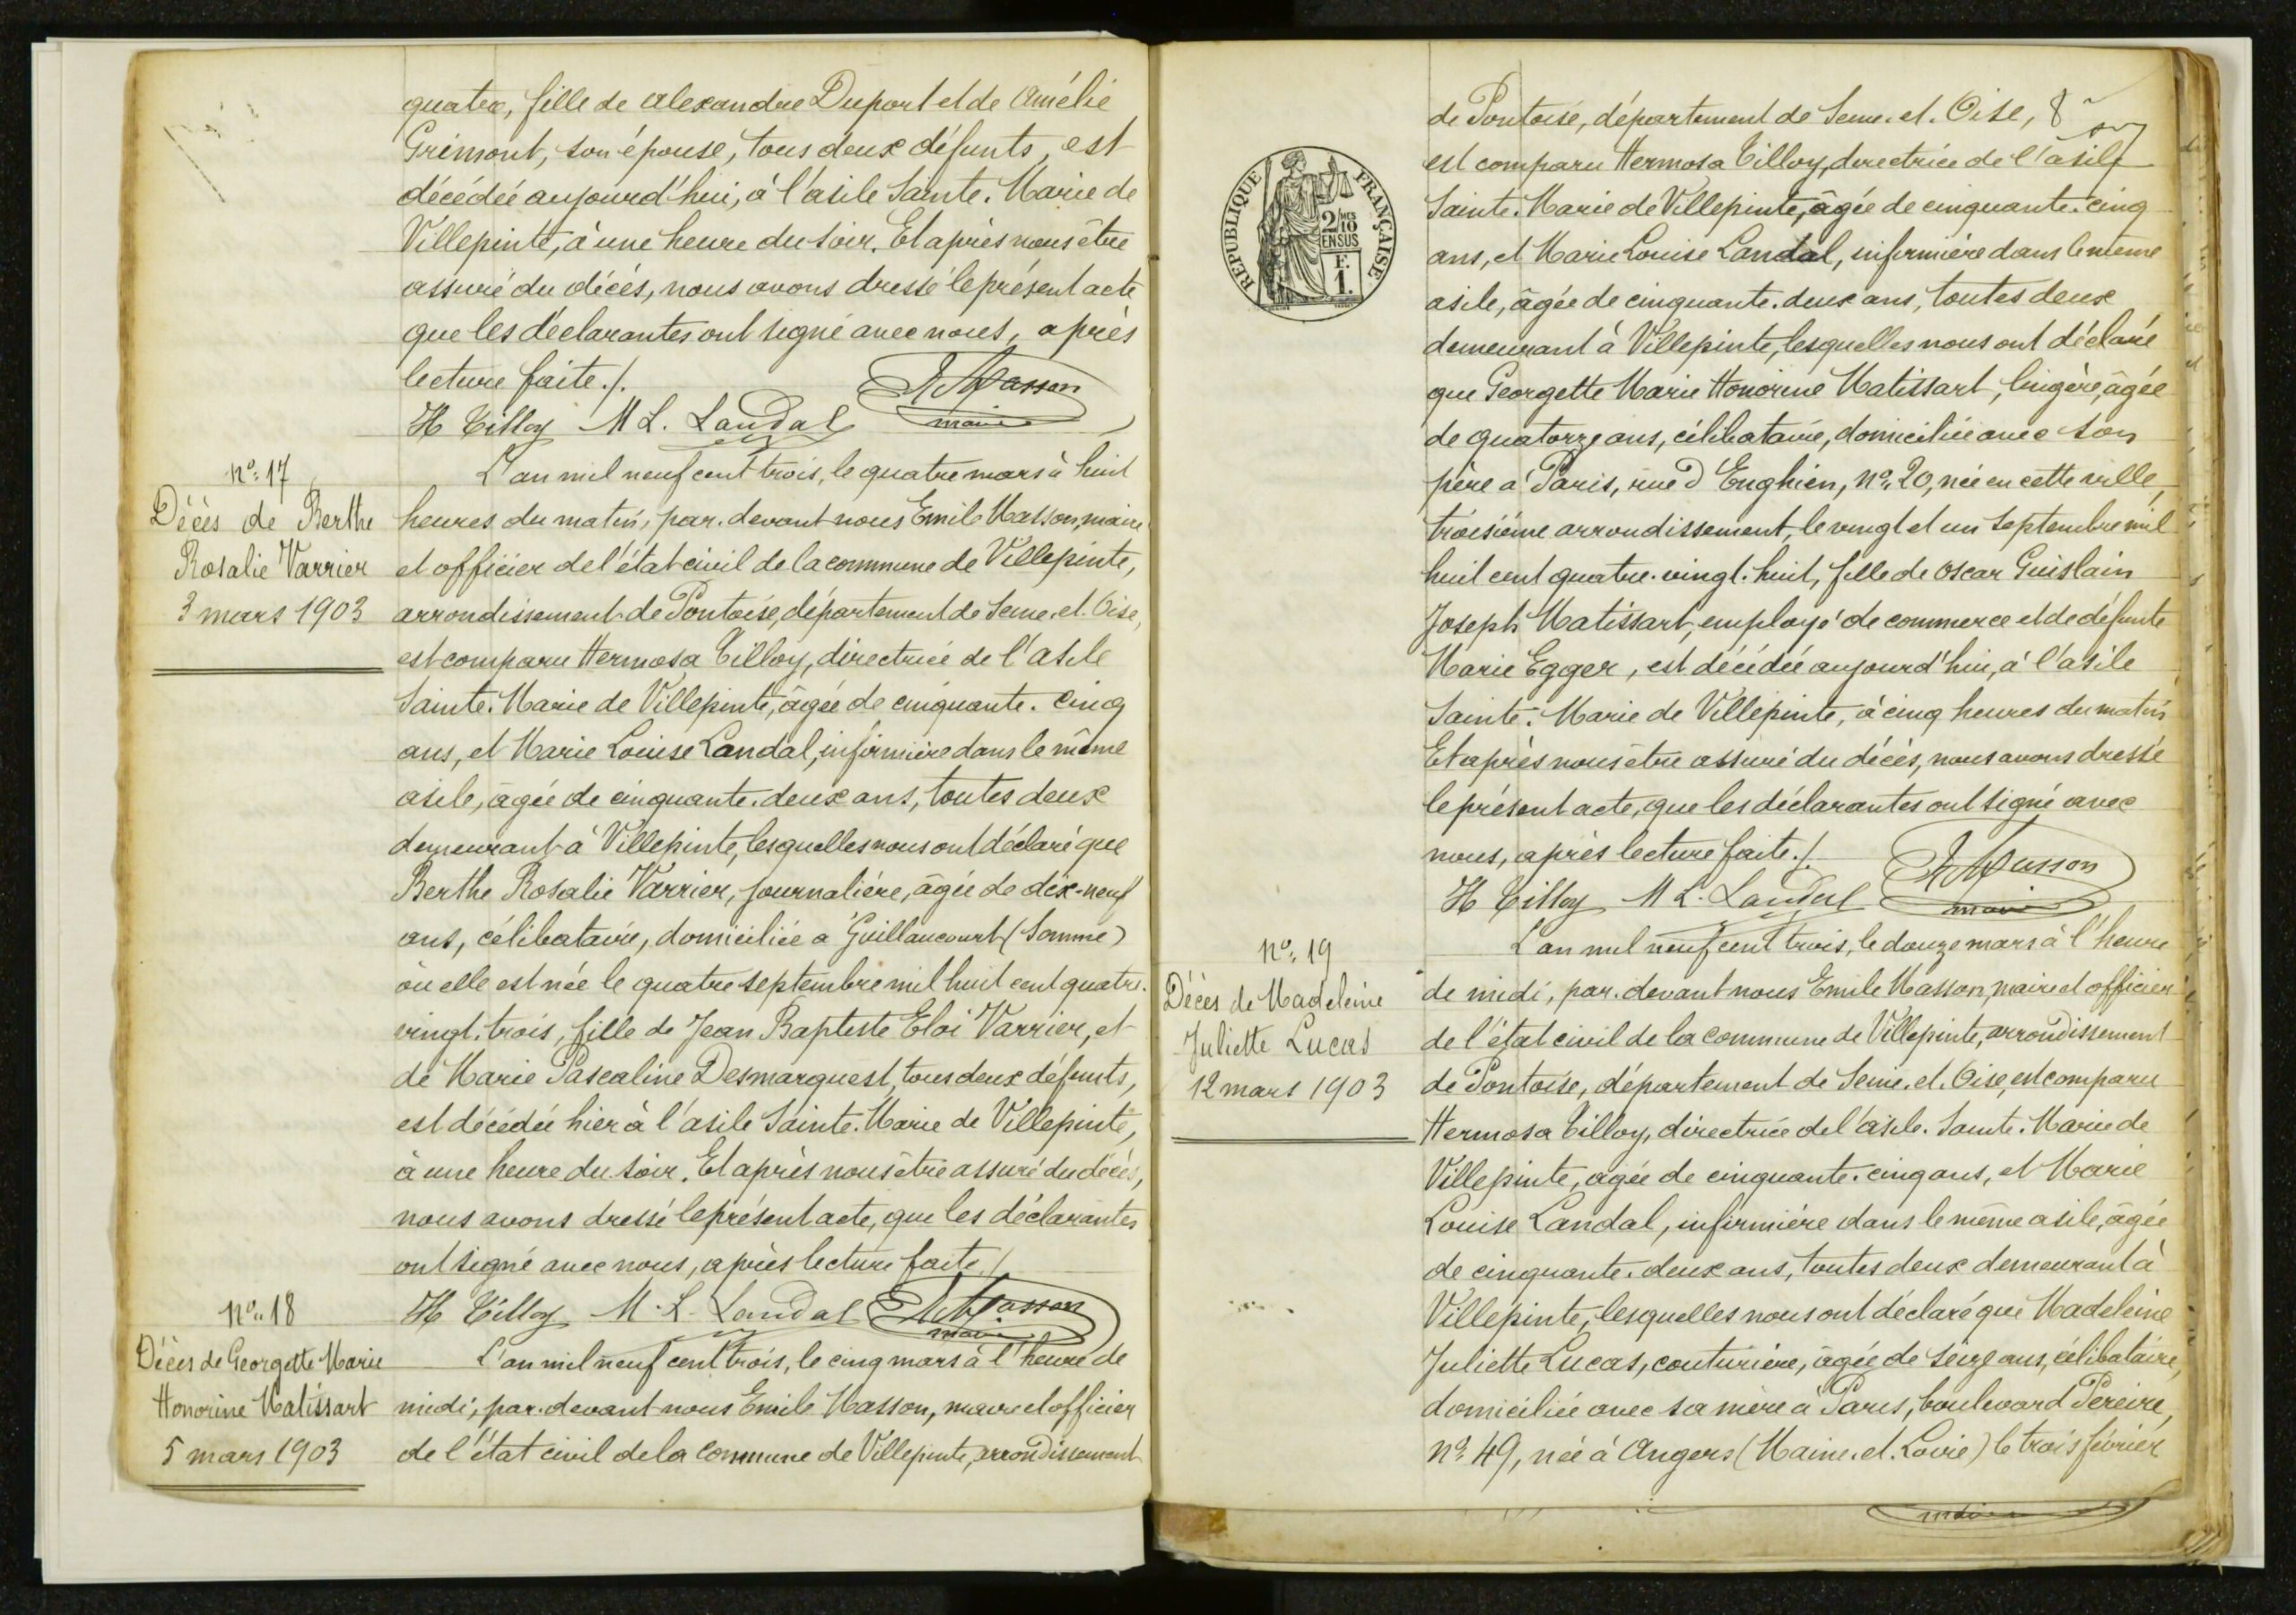 quatre, fille de Alexandre Duport et de Amélie
Grimont, son épouse, tous deux défunts, est
décédée aujourd'hui, à l'asile Sainte. Marie de
Villepinte, à une heure du soir. Et après nous être
assuré du décès, nous avons dressé le présent acte
que les déclarantes ont signé avec nous, après
lecture faite./.
H Tilloy M L. Landal E Masson
maire
nº: 17
Décès de Berthe
Rosalie Varrier
3 mars 1903
L'an mil neuf cent trois, le quatre mars à huit
heures du matin, par. devant nous Emile Masson, maire
et officier de l'état civil de la commune de Villepinte,
arrondissement de Pontoise, département de Seine. et. Oise,
est comparu Hermosa Tilloy, directrice de l'asile
Sainte. Marie de Villepinte, âgée de cinquante. cinq
ans, et Marie Louise Landal, infirmière dans le même
asile, âgée de cinquante. deux ans, toutes deux
demeurant à Villepinte, lesquelles nous ont déclaré que
Berthe Rosalie Varrier, journalière, âgée de dix-neuf
ans, célibataire, domiciliée à Guillaucourt (Somme)
où elle est née le quatre septembre mil huit cent quatre.
vingt. trois, fille de Jean Baptiste Eloi Varrier, et
de Marie Pascaline Desmarquest, tous deux défunts,
est décédée hier à l'asile Sainte. Marie de Villepinte,
à une heure du soir. Et après nous être assuré du décès,
nous avons dressé le présent acte, que les déclarantes
ont signé avec nous, après lecture faite./.
H Tilloy M. L. Landal E Masson
maire
nº: 18
Décès de Georgette Marie
Honorine Matissart
5 mars 1903
L'an mil neuf cent trois, le cinq mars à l'heure de
midi, par. devant nous Emile Masson, maire et officier
de l'état civil de la commune de Villepinte, arrondissement
de Pontoise, département de Seine. et. Oise, 8
est comparu Hermosa Tilloy, directrice de l'asile
Sainte. Marie de Villepinte, âgée de cinquante. cinq
ans, et Marie Louise Landal, infirmière dans le même
asile, âgée de cinquante. deux ans, toutes deux
demeurant à Villepinte, lesquelles nous ont déclaré
que Georgette Marie Honorine Matissart, lingère, âgée
de quatorze ans, célibataire, domiciliée avec son
père à Paris, rue d'Enghien, nº: 20, née en cette ville,
troisième arrondissement, le vingt et un septembre mil
huit cent quatre. vingt. huit, fille de Oscar Guislain
Joseph Matissart, employé de commerce et de défunte
Marie Egger, est décédée aujourd'hui, à l'asile
Sainte. Marie de Villepinte, à cinq heures du matin
Et après nous être assuré du décès, nous avons dressé
le présent acte, que les déclarantes ont signé avec
nous, après lecture faite./.
H Tilloy M L. Landal E Masson
maire
RÉPUBLIQUE FRANÇAISE
2/10
EN SUS
F.
1.
nº: 19
Décès de Madeleine
Juliette Lucas
12 mars 1903
L'an mil neuf cent trois, le douze mars à l'heure
de midi, par. devant nous Emile Masson, maire et officier
de l'état civil de la commune de Villepinte, arrondissement
de Pontoise, département de Seine. et. Oise, est comparu
Hermosa Tilloy, directrice de l'asile. Sainte. Marie de
Villepinte, âgée de cinquante. cinq ans, et Marie
Louise Landal, infirmière dans le même asile, âgée
de cinquante. deux ans, toutes deux demeurant à
Villepinte, lesquelles nous ont déclaré que Madeleine
Juliette Lucas, couturière, âgée de seize ans, célibataire,
domiciliée avec sa mère à Paris, boulevard Pereire,
nº: 49, née à Angers (Maine. et. Loire) le trois février
maire